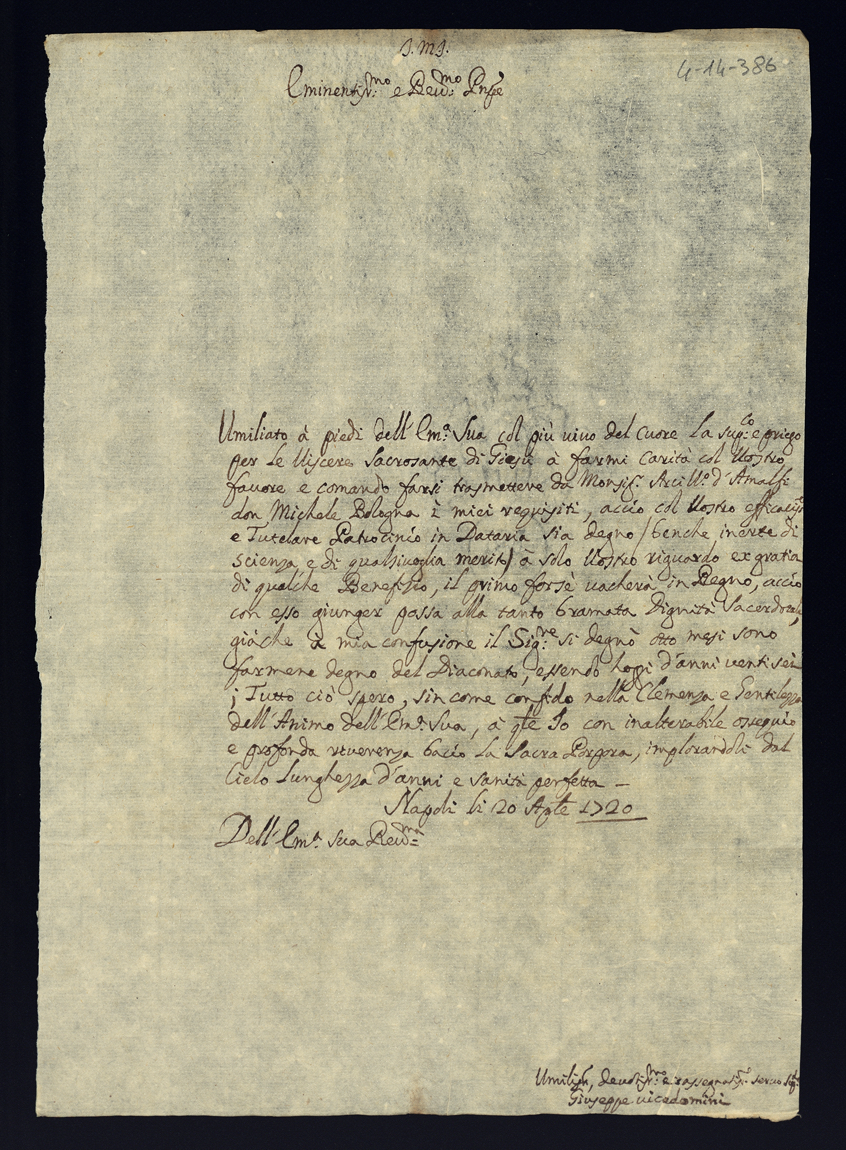 J.M.J.
4-14-386
Eminentiss:mo e Reu:mo Pnpe
Umiliato à piedi dell'Em:a Sua col più uiuo del Cuore La sup:co e priego
per Le Uiscere Sacrosante di Giesù à farmi Carità col Uostro
fauore e comando farsi trasmettere da Monsig:r Arciu:o d'Amalfi
don Michele Bologna i miei requisiti, acciò col Uostro efficaciss:o
e Tutelare Patrocinio in Dataria sia degno /benche inerte di
scienza e di qualsiuoglia merito/ à solo Uostro riguardo ex gratia
di qualche Benefizio, il primo forsè uacherà in Regno, acciò
con esso giunger possa alla tanto bramata Dignità Sacerdotale,
giàche à mia confusione il Sig:re si degnò otto mesi sono
farmene degno del Diaconato, essendo hoggi d'anni uentisei
; Tutto ciò spero, sincome confido nella Clemenza e Gentilezza
dell'Animo dell'Em:a Sua, à q:le Io con inalterabile ossequio
e profonda riuerenza bacio La Sacra Porpora, implorandoli dal
Cielo Lunghezza d'anni e sanità perfetta –
Napoli li 20 Aple 1720
Dell'Em:a Sua Reu:ma
Umiliss:, deuotiss:mo e rassegnatiss:o seruo
Giuseppe uicedomini